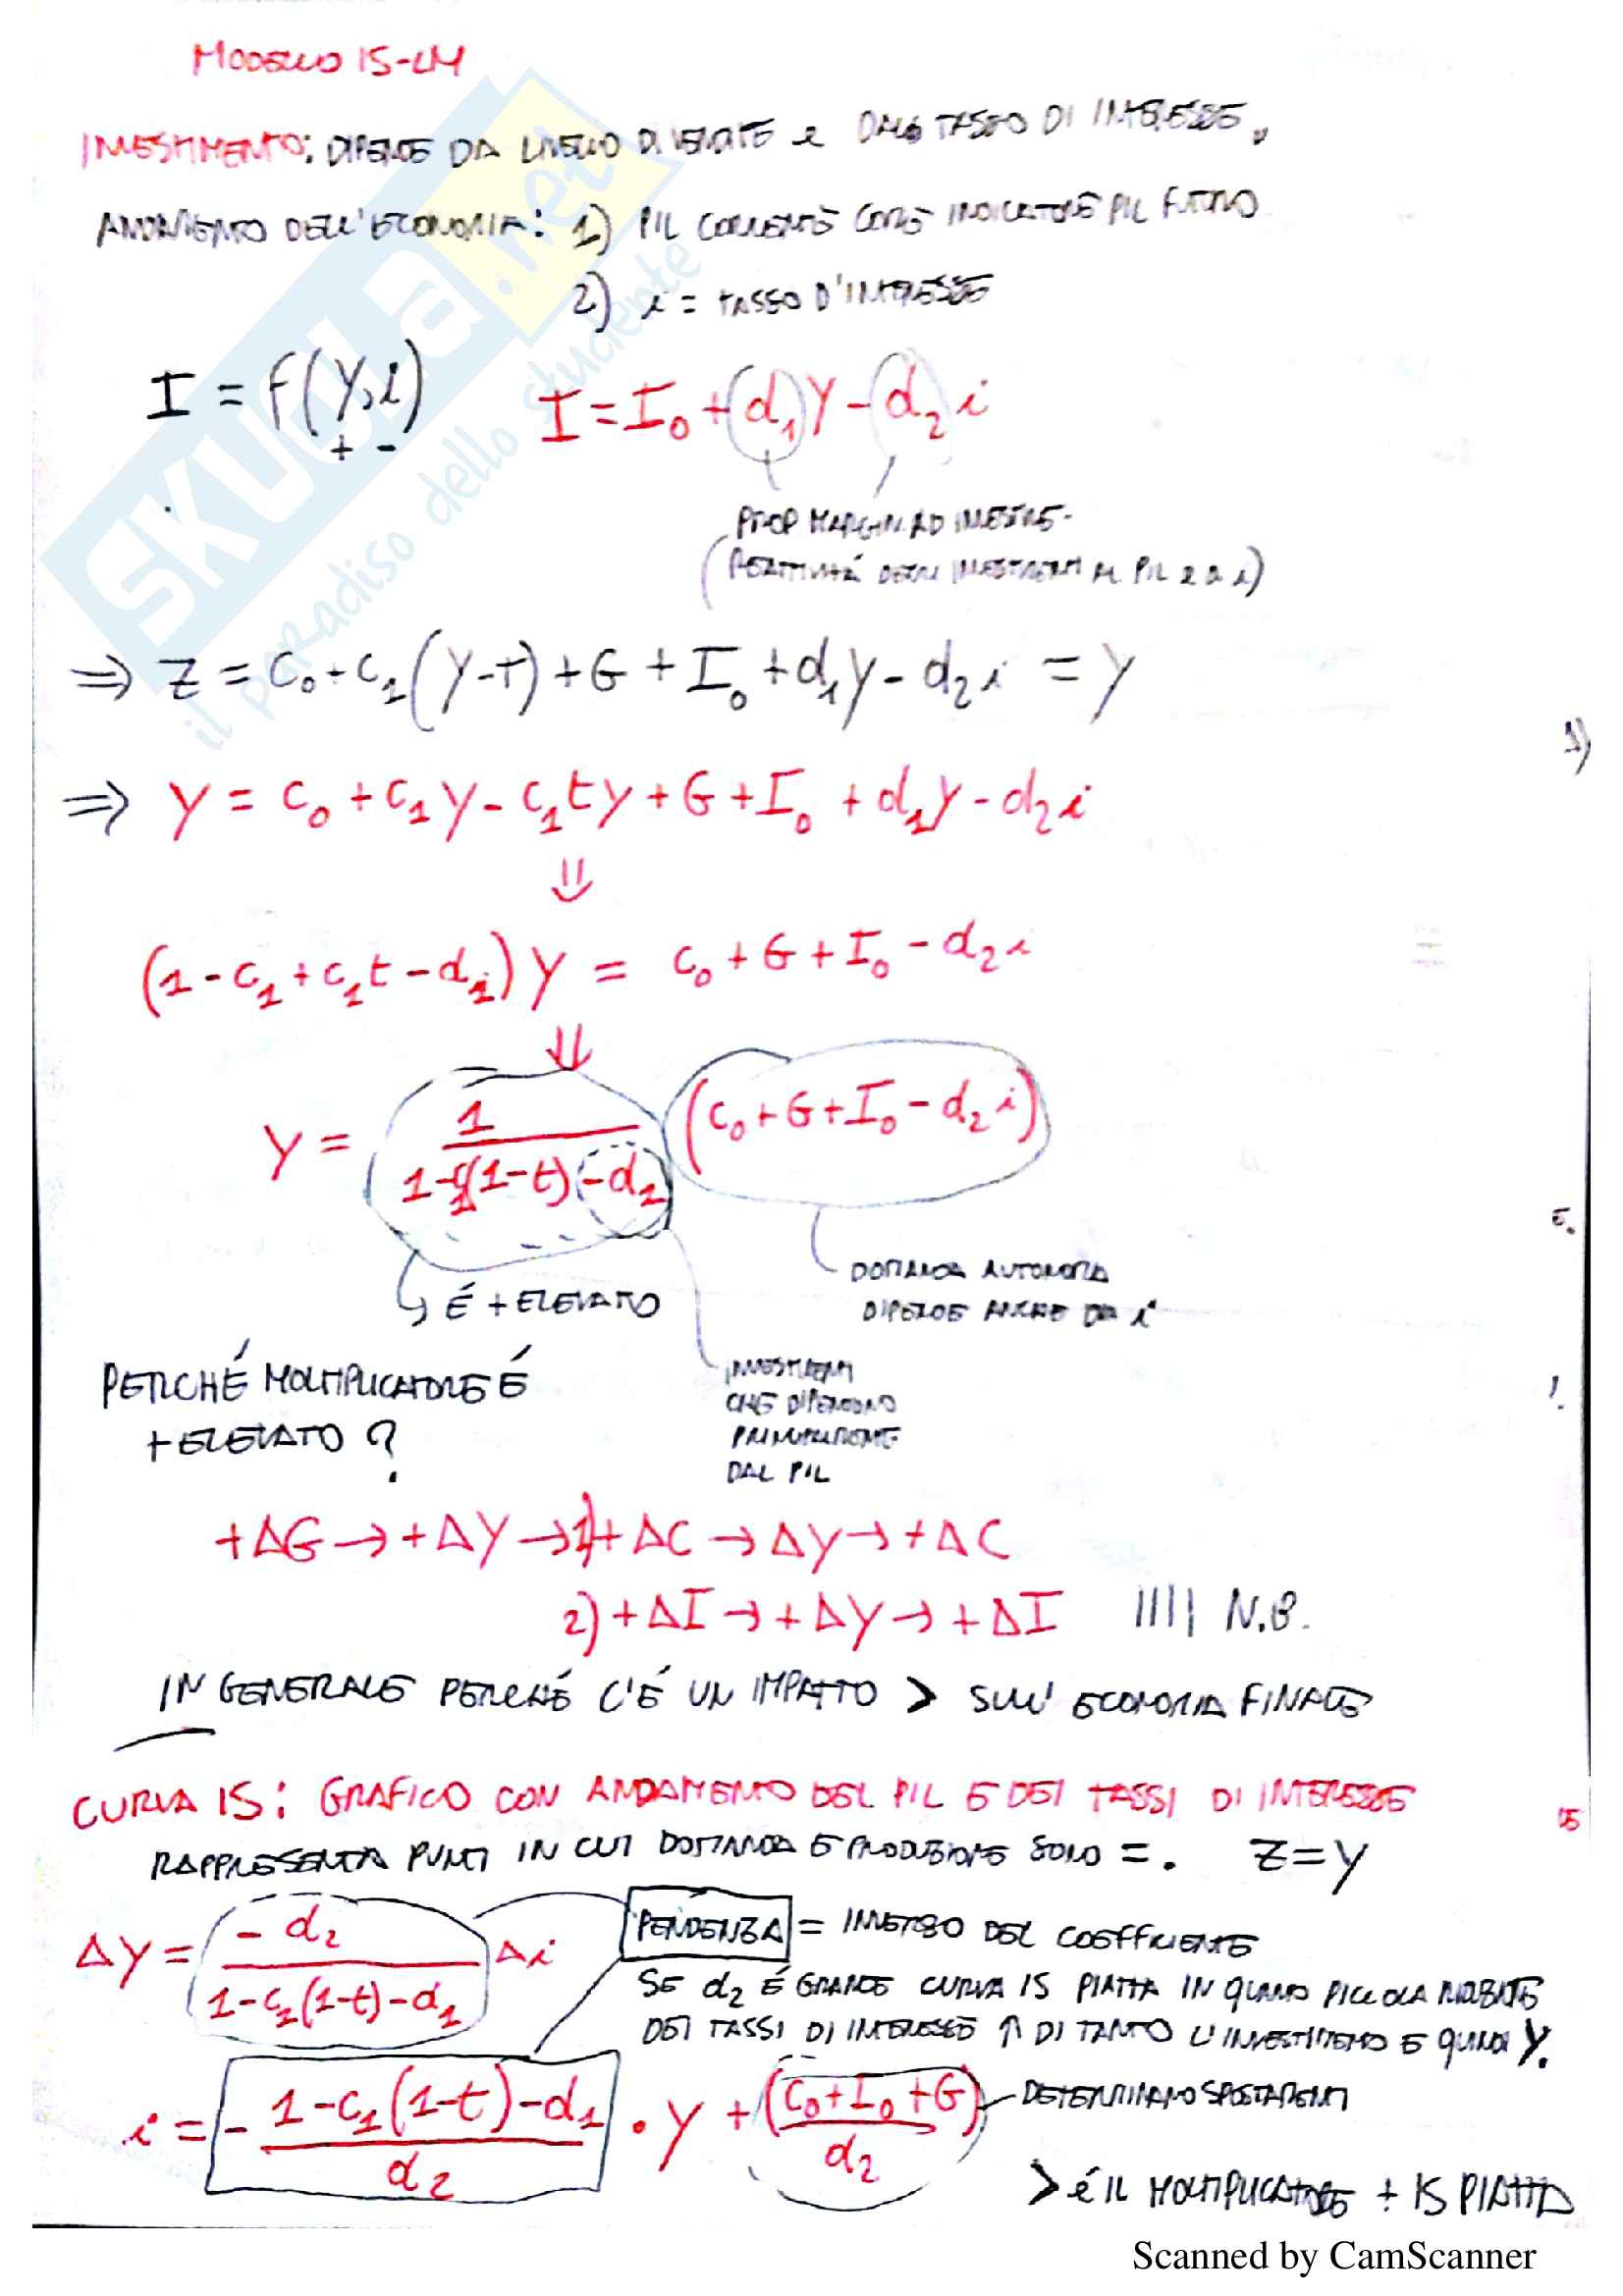 MODELLO IS-LM
INVESTIMENTO: DIPENDE DA LIVELLO DI VENDITE e DAL TASSO DI INTERESSE.
ANDAMENTO DELL'ECONOMIA: 1) PIL CORRENTE COME INDICATORE PIL FUTURO
2) i = TASSO D'INTERESSE
I = f(Y, i)
+ -
I = I₀ + d₁Y - d₂i
PROP MARGIN. AD INVESTIRE
(REATTIVITÁ DEGLI INVESTIMENTI AL PIL e a i)
⇒ Z = C₀ + C₁(Y-T) + G + I₀ + d₁Y - d₂i = Y
1)
⇒ Y = C₀ + C₁Y - C₁tY + G + I₀ + d₁Y - d₂i
⇓
(1 - C₁ + C₁t - d₁)Y = C₀ + G + I₀ - d₂i
⇓
Y = 1 / (1 - C₁(1-t) - d₁) (C₀ + G + I₀ - d₂i)
DOMANDA AUTONOMA
DIPENDE ANCHE DA i
↳ É + ELEVATO
INVESTIMENTI
CHE DIPENDONO
PRINCIPALMENTE
DAL PIL
PERCHÉ MOLTIPLICATORE É
+ ELEVATO ?
+ΔG → +ΔY → 1) +ΔC → ΔY → +ΔC
2) +ΔI → +ΔY → +ΔI |||| N.B.
IN GENERALE PERCHÉ C'É UN IMPATTO > SULL'ECONOMIA FINALE
CURVA IS: GRAFICO CON ANDAMENTO DEL PIL E DEI TASSI DI INTERESSE
RAPPRESENTA PUNTI IN CUI DOMANDA E PRODUZIONE SONO =. Z=Y
ΔY = - d₂ / (1 - C₁(1-t) - d₁) Δi
PENDENZA = INVERSO DEL COEFFICIENTE
SE d₂ É GRANDE CURVA IS PIATTA IN QUANTO PICCOLA RIDUZIONE
DEI TASSI DI INTERESSE ↑ DI TANTO L'INVESTIMENTO E QUINDI Y.
i = - (1 - C₁(1-t) - d₁) / d₂ · Y + (C₀ + I₀ + G) / d₂
DETERMINANO SPOSTAMENTI
> é IL MOLTIPLICATORE + IS PIATTA
SKUOLA.net
il paradiso dello studente
Scanned by CamScanner